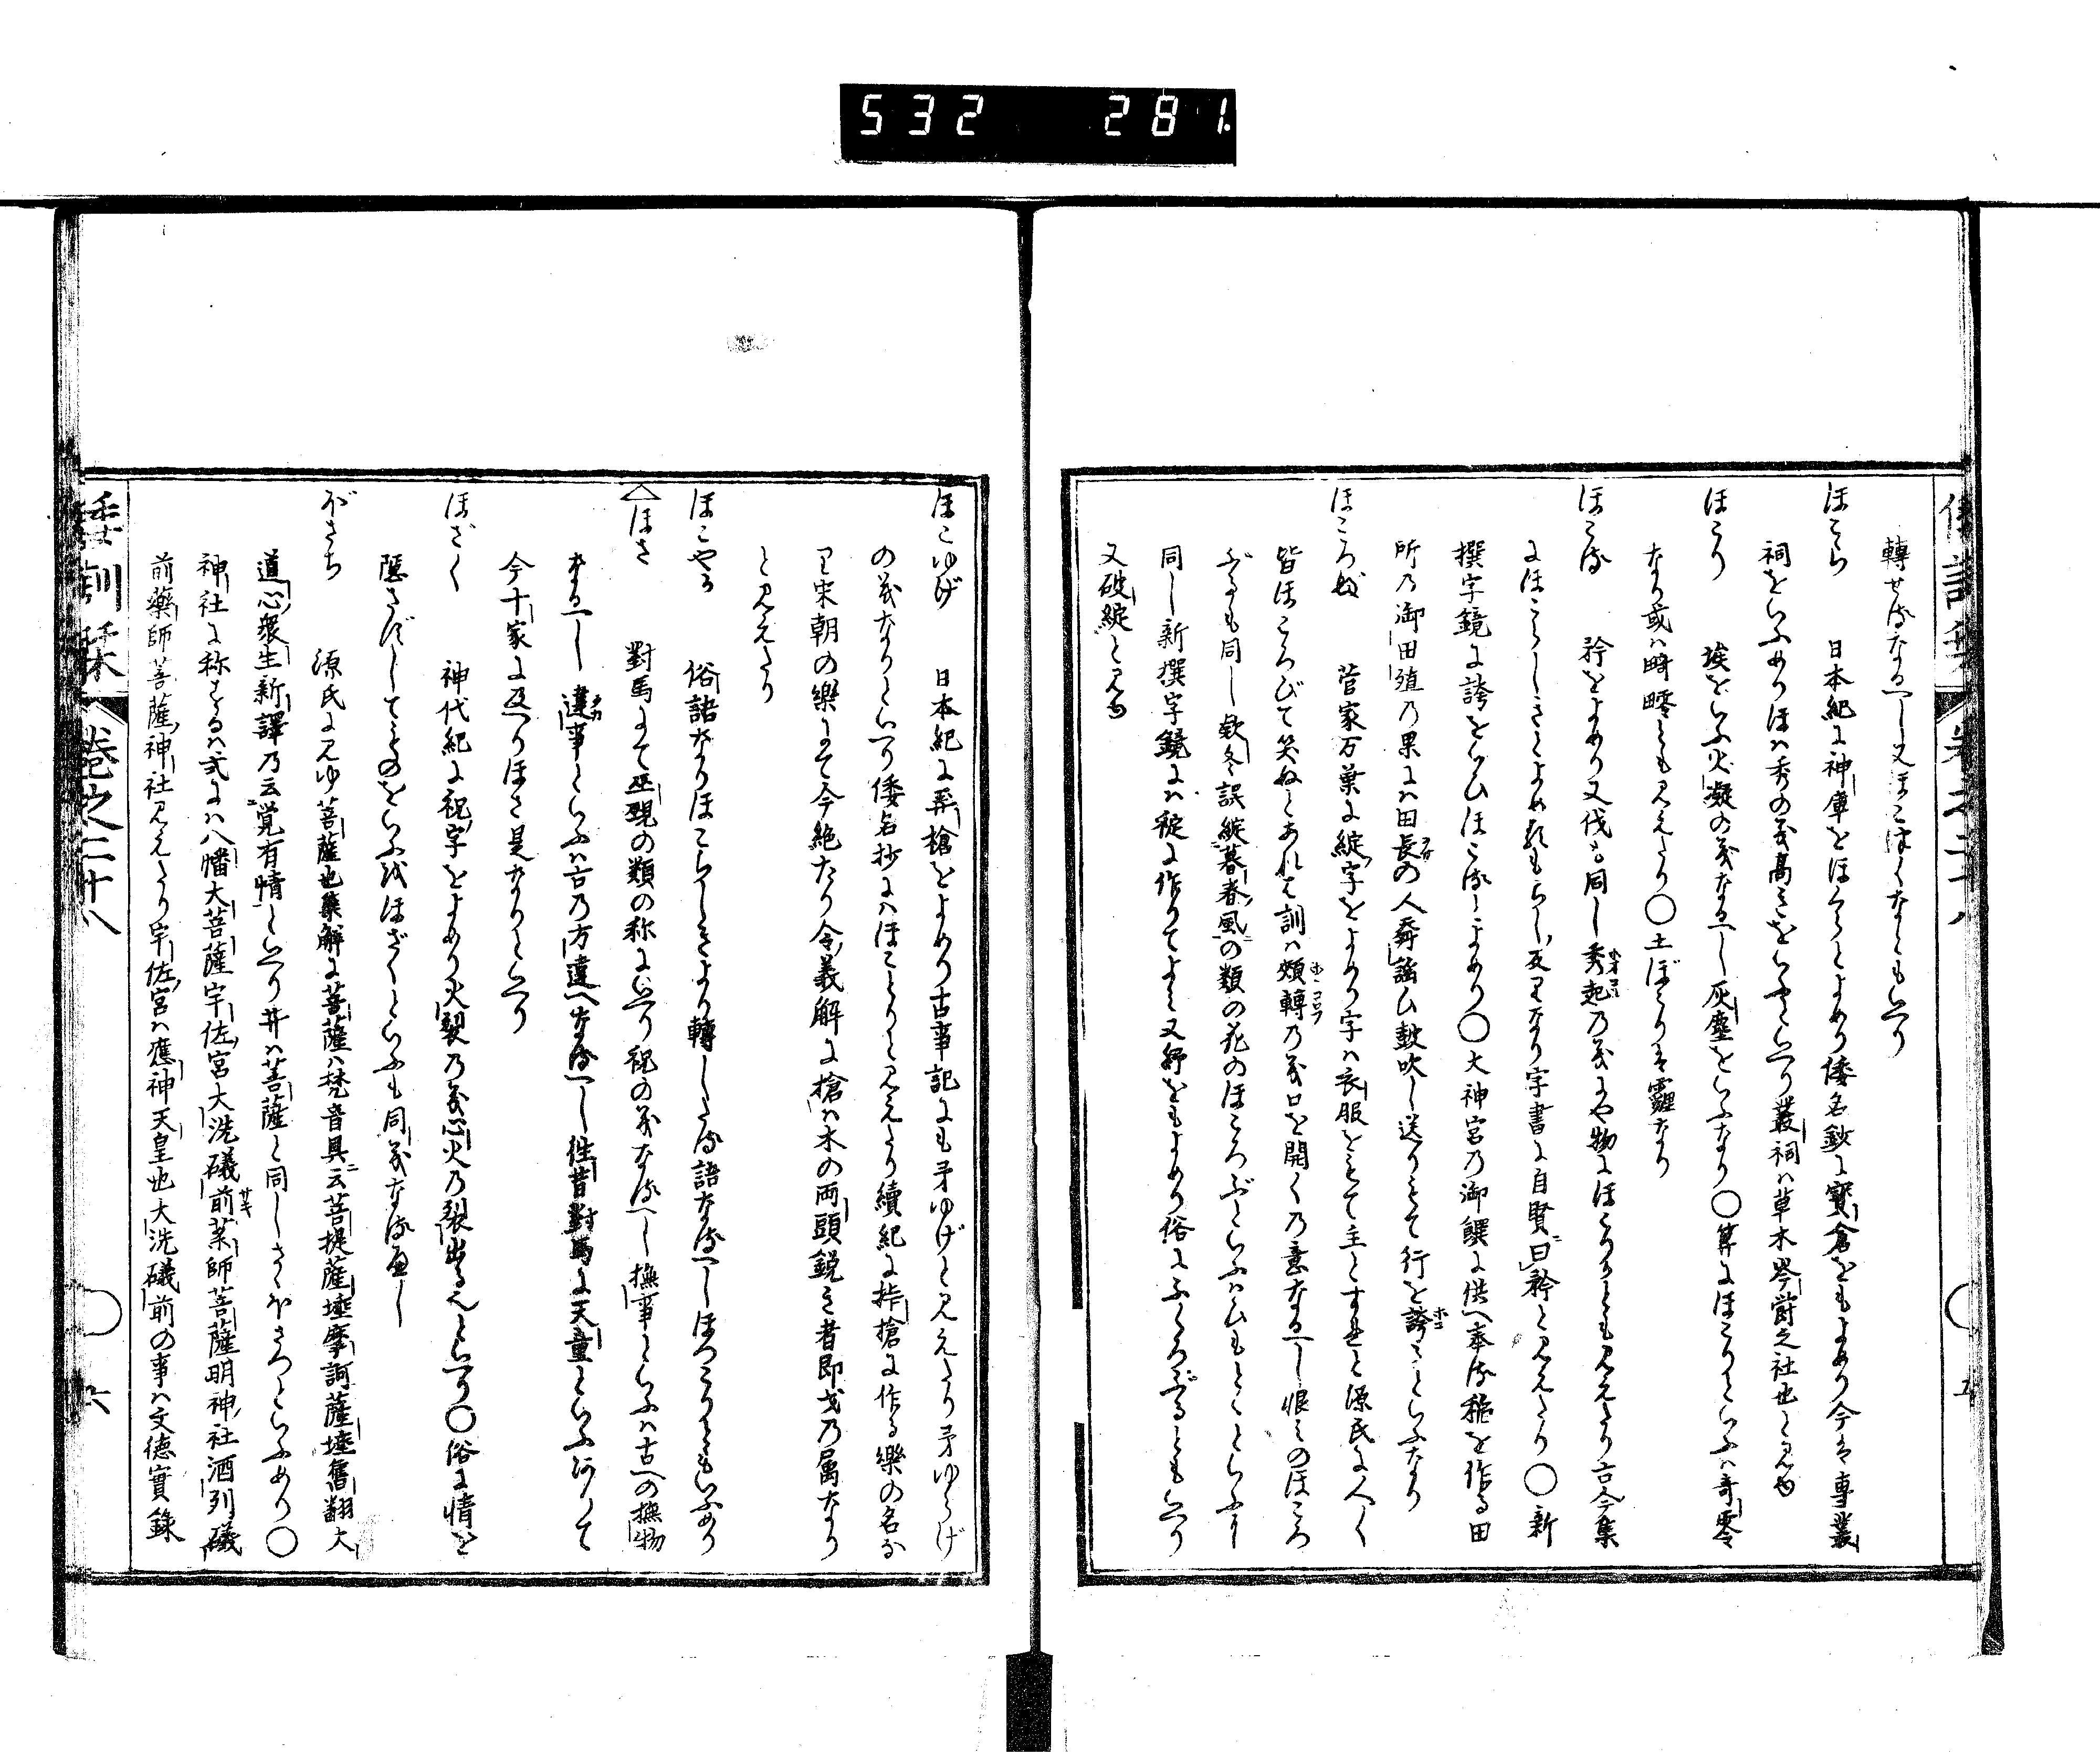 532 281.
轉せるなるへし又ほこほくなともいへり
ほくら 日本紀に神庫をほくらとよめり倭名鈔に寳倉をもよめり今は専叢
祠をいふめりほは秀の義高きをいふといへり叢祠は草木岑蔚之社也と見ゆ
ほこり 埃をいふ火凝の義なるへし灰塵をいふなり○算にほこりといふは奇零
なり或は畸零とも見えたり○土ぼこりは霾なり
ほこる 矜をよめり又伐も同し秀起の義にや物にほこりるとも見えたり古今集
にほこらしきとよめるもらし反りなり字書に自賢曰矜と見えたり○新
撰字鏡に誇をいひほこるとよめり○大神宮の御饌に供へ奉る稲を作る田
所の御田殖の果には田長の人舞謡ひ鼓吹し送りもて行を誇ことといふなり
ほころぶ 菅家万葉に綻字をよめり字は衣服をもて主とすれと源氏に人々
皆ほころびて笑ぬとあれは訓は頬轉の義口を開くの意なるへし恨みのほころ
ぶるも同し欵冬誤綻暮春風の類の花のほころぶといふはひもとくといふに
同し新撰字鏡には䘺に作りてよみ又紓をもよめり俗にふくろびるともいへり
又破綻と見ゆ
倭訓栞 巻之二十八 ○ 五
ほこゆげ 日本紀に弄槍をよめり古事記にも矛ゆげと見えたり矛ゆらげ
の義なりといへり倭名抄にはほことりと見えたり續紀に桙槍に作る樂の名な
り宋朝の樂にて今絶たり令義解に槍は木の両頭鋭き者即戈の属なり
と見えたり
ほこやか 俗諺なりほこらしきより轉したる語なるへしほつこりともいふめり
△ほさ 對馬にて巫覡の類の称にいへり祝の義なるへし撫事といふは古への撫物
なるへし違事といふは古の方違へなるへし往昔對馬に天童といふ行りて
今十家に及へりほさ是なりといへり
ほざく 神代紀に祝字をよめり火裂の義心火の裂出る也といへり○俗に情を
隠さずしてものをいふをほざくといふも同義なるべし
ぼさち 源氏に見ゆ菩薩也藥解に菩薩は梵音具云菩提薩埵摩訶薩埵舊翻大
道心衆生新譯乃云覚有情といへり井は菩薩と同しさゝぼさつといふめり○
神社に称するは式には八幡大菩薩宇佐宮大洗礒前薬師菩薩明神社酒列礒
前藥師菩薩神社見えたり宇佐宮は應神天皇也大洗礒前の事は文徳實録
倭訓栞 巻之二十八 ○ 六